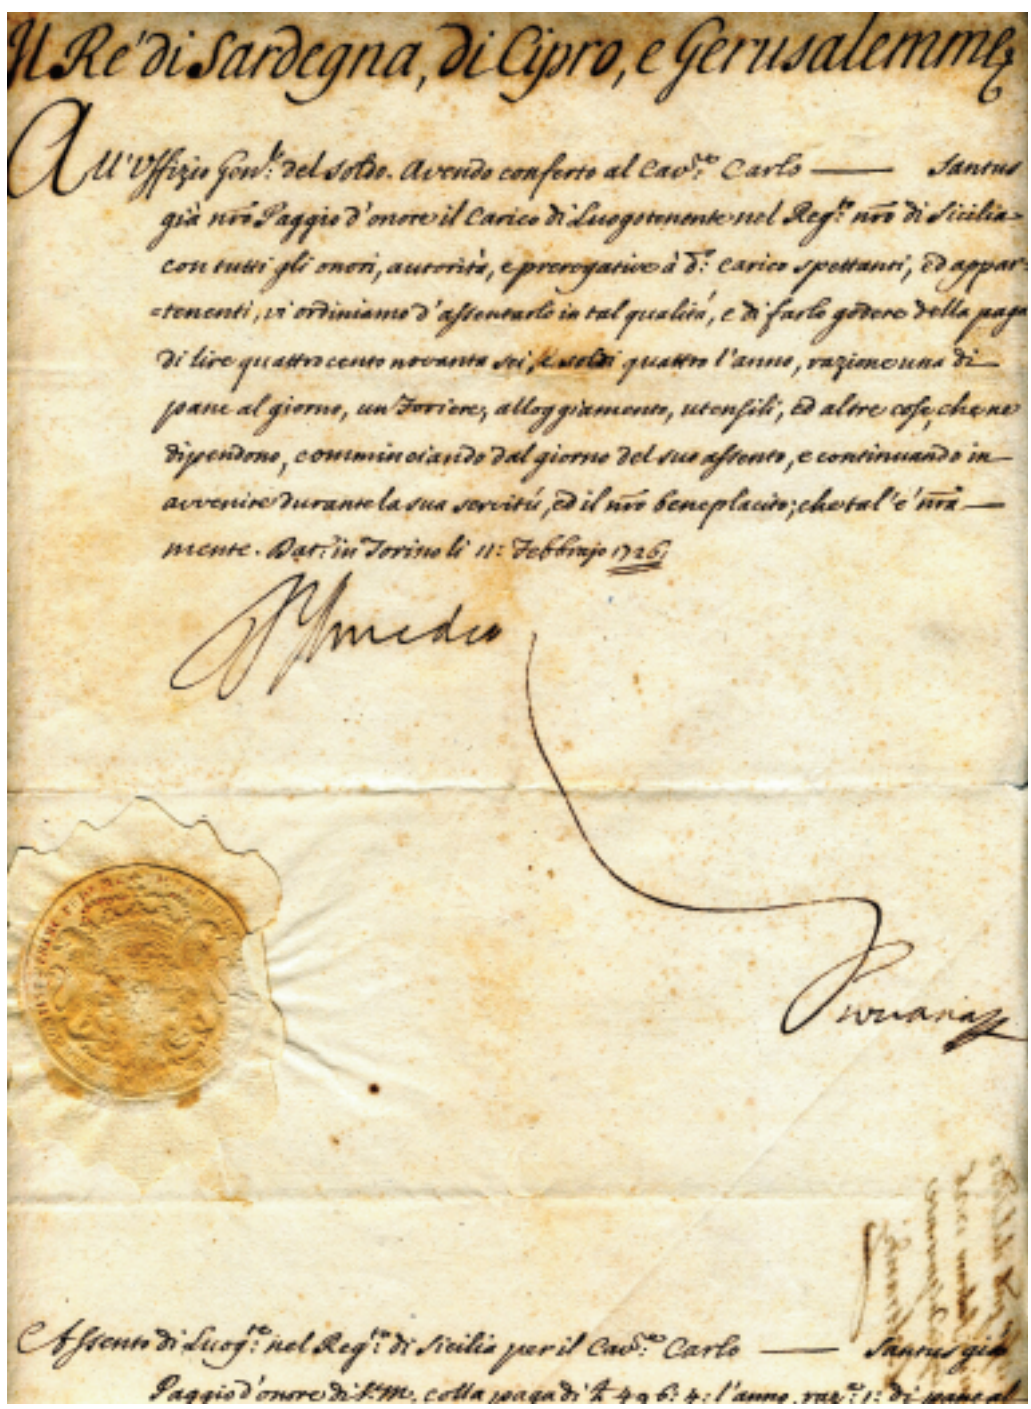 Il Re' di Sardegna, di Cipro, e Gerusalemme
All'Uffizio Gen.le del soldo. Avendo conferto al Cav.re Carlo — Santus
già nr̃o Paggio d'onore il Carico di Luogotenente nel Reg.to nr̃o di Sicilia
con tutti gli onori, autorità, e prerogative à d.o Carico spettanti, ed appar-
=tenenti, vi ordiniamo d'assentarlo in tal qualità, e di farlo godere della paga
di lire quattrocento novanta sei, e soldi quattro l'anno, razione una di
pane al giorno, un Foriere, alloggiamento, utensili, ed altre cose, che ne
dipendono, comminciando dal giorno del suo assento, e continuando in
avvenire durante la sua servitù, ed il nr̃o beneplacito; che tal' è nr̃a
mente. Dat.: in Torino li 11: Febbrajo 1726
V Amedeo
Assento di Luog.te nel Reg.to di Sicilia per il Cav.re Carlo — Santus già
Paggio d'onore di S.M. colla paga di £ 496: 4: l'anno, raz.e 1: di pane al